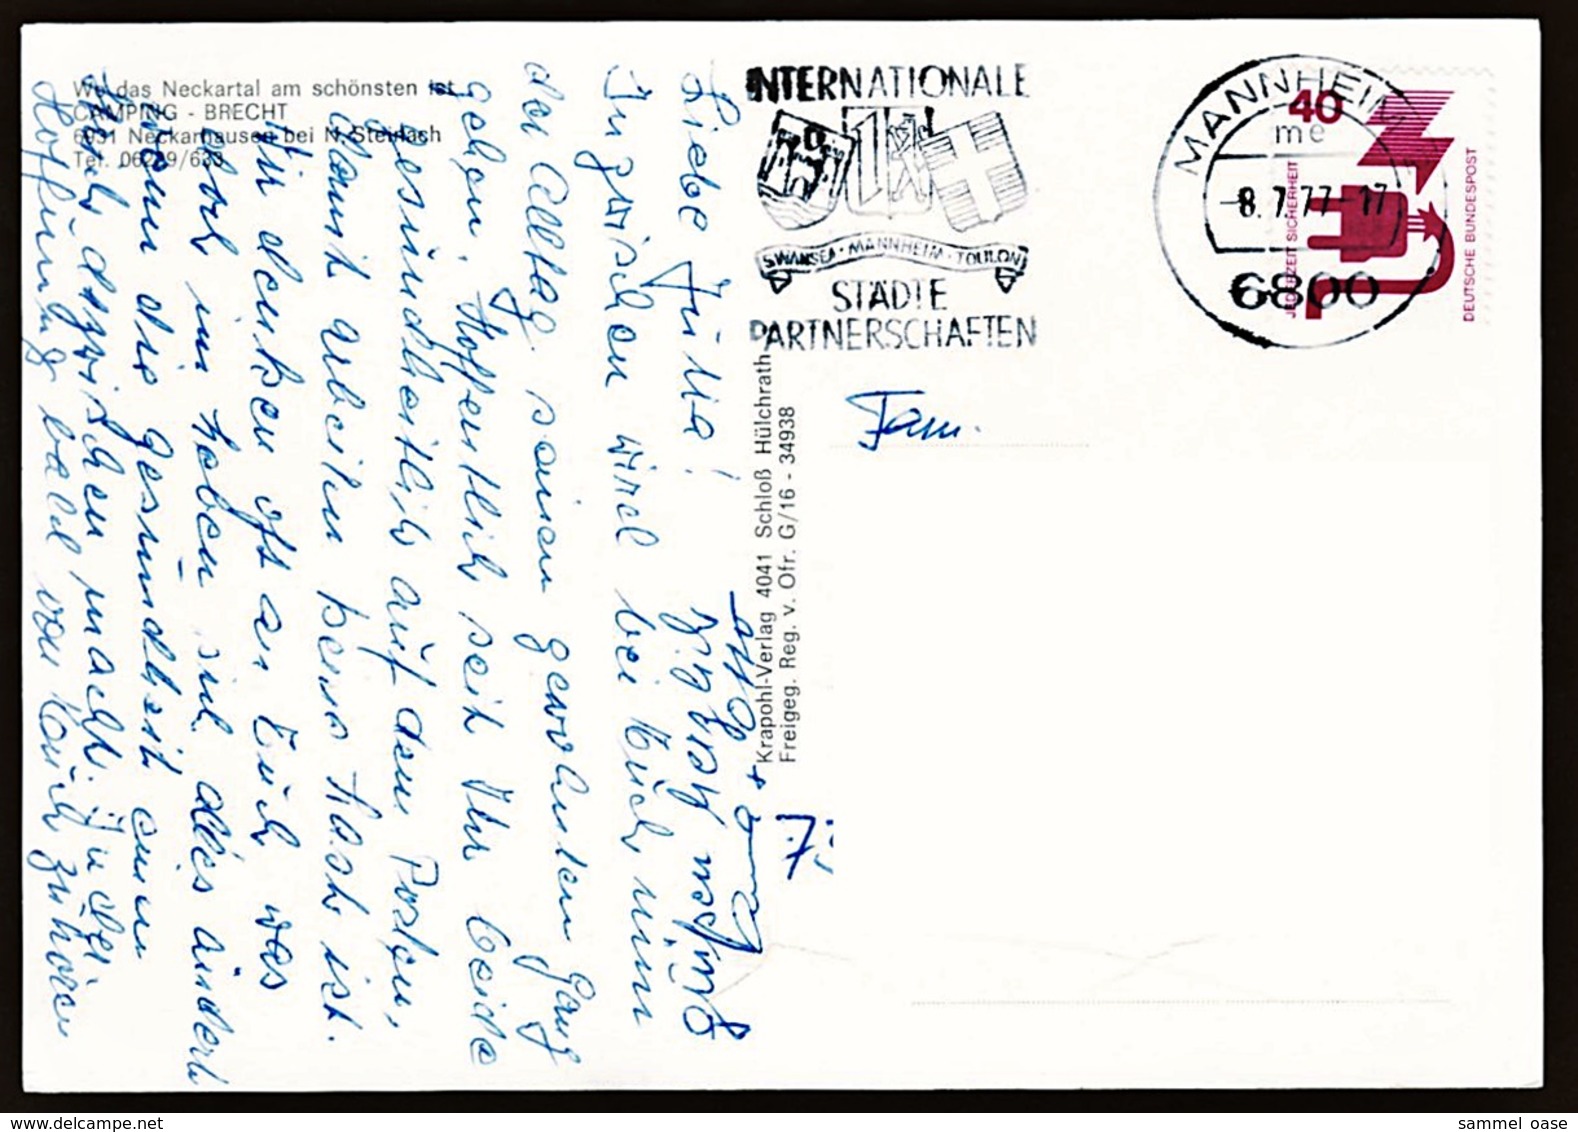 Wo das Neckartal am schönsten ist
CAMPING - BRECHT
6931 Neckarhausen bei N.-Steinach
Tel. 06229/633
Liebe Julia!
Inzwischen wird bei Euch nun
der Alltag seinen gewohnten Gang
gehen. Hoffentlich seit Ihr beide
gesundheitlich auf dem Posten,
damit arbeiten keine Last ist.
Wir denken oft an Euch was
wir haben sich alles ändert
wenn die Gesundheit einen
Strich dazwischen macht. In der
Hoffnung bald von Euch zu hören
grüßen herzligst
Oma + Otto
Krapohl-Verlag 4041 Schloß Hülchrath
Freigeg. Reg. v. Ofr. G/16 - 34938
INTERNATIONALE
SWANSEA · MANNHEIM · TOULON
STÄDTE
PARTNERSCHAFTEN
MANNHEIM
me
-8.7.77-17
6800
40
JEDERZEIT SICHERHEIT
DEUTSCHE BUNDESPOST
Fam.
sammel oase